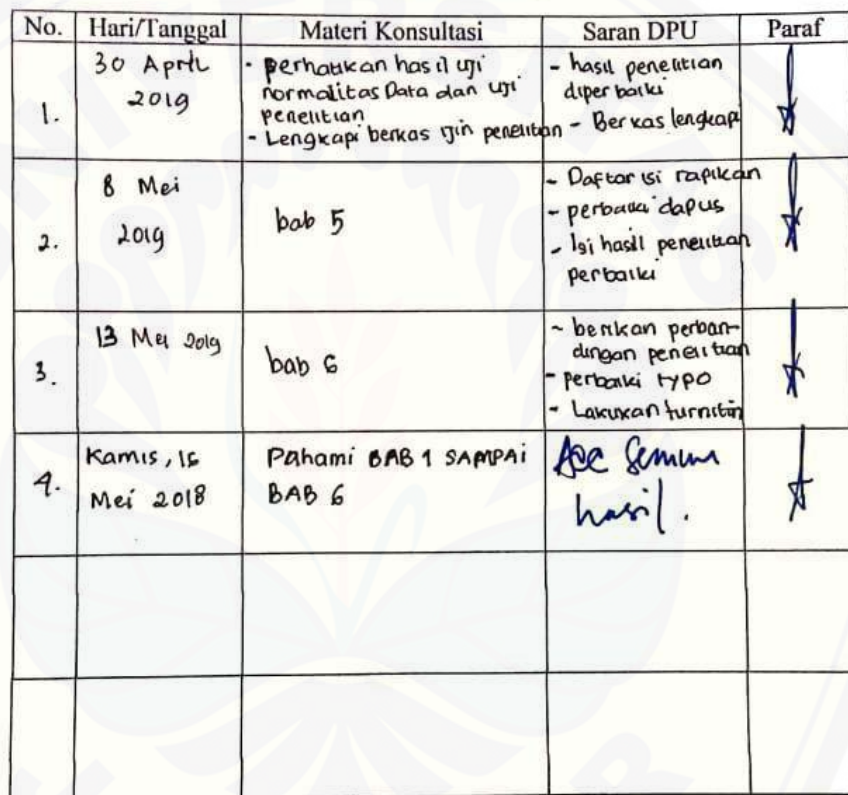 No. Hari/Tanggal Materi Konsultasi Saran DPU Paraf
1.
30 April
2019
- perhatikan hasil uji
normalitas Data dan uji
penelitian
- Lengkapi berkas ijin penelitian
- hasil penelitian
diperbaiki
- Berkas lengkap
2.
8 Mei
2019
bab 5
- Daftar isi rapikan
- perbaiki dapus
- Isi hasil penelitian
perbaiki
3.
13 Mei 2019
bab 6
- berikan perban-
dingan penelitian
- perbaiki typo
- Lakukan turnitin
4.
Kamis, 16
Mei 2018
Pahami BAB 1 SAMPAI
BAB 6
Acc
hasil.